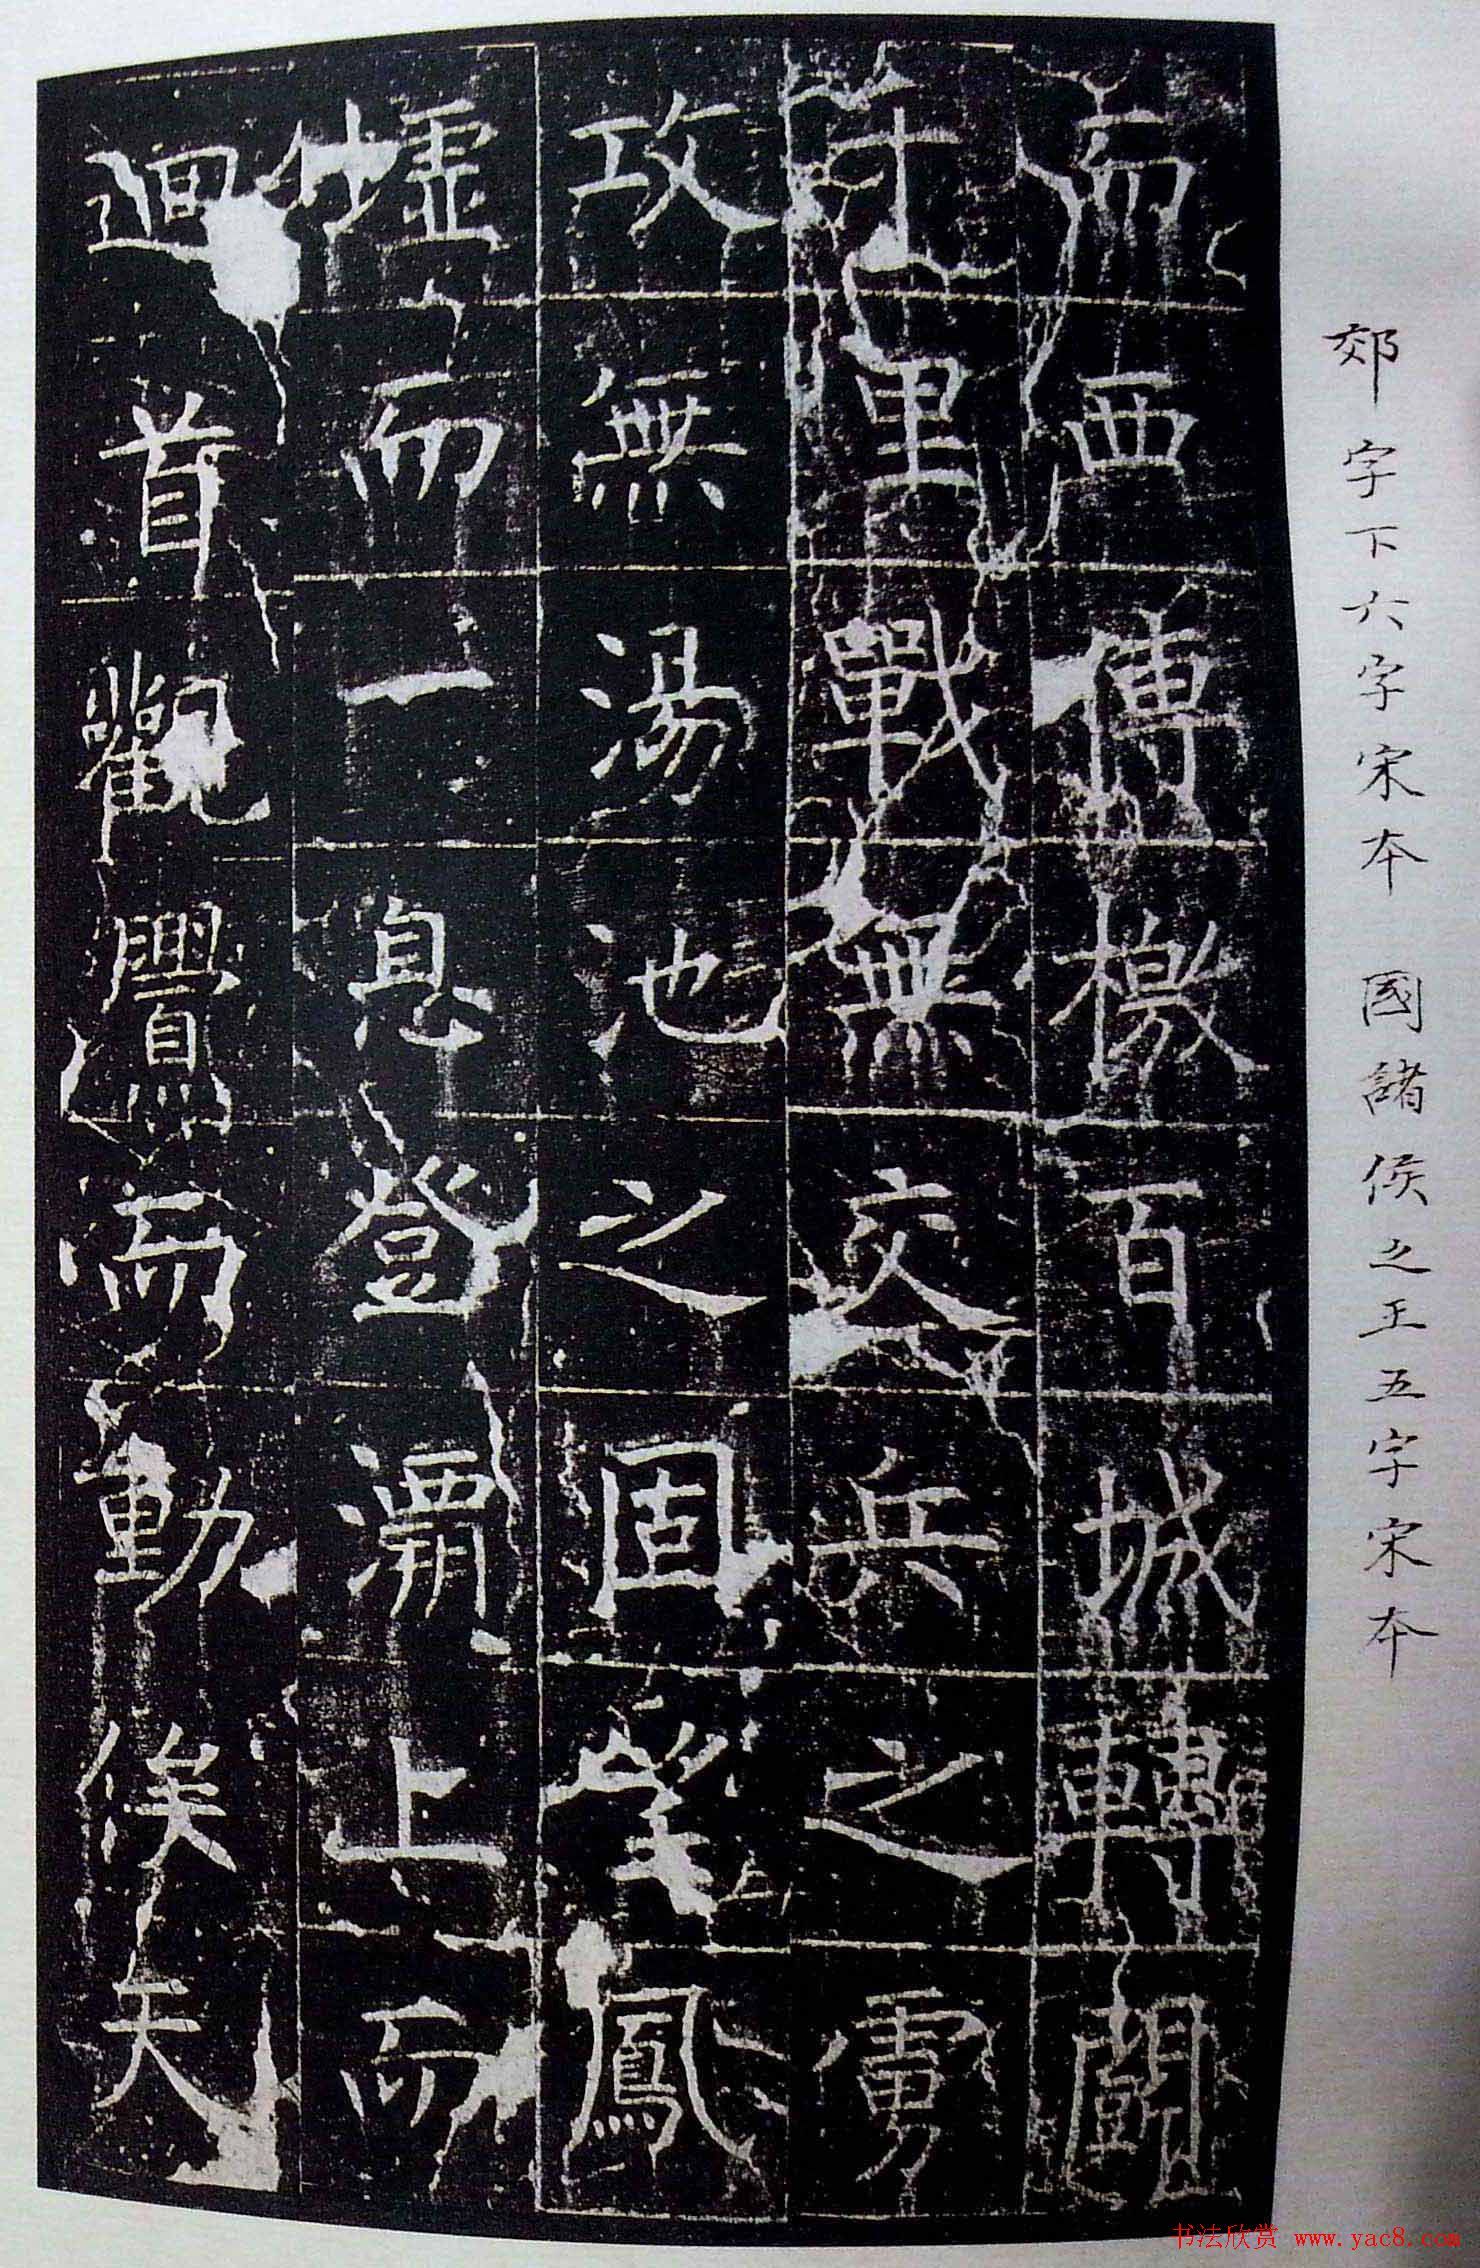 郊字下六字宋本 國諸侯之王五字宋本
而西傳檄百城轉鬭
千里戰無交兵之虜
攻無湯池之固望鳳
墟而一息登灞上而
迴首觀釁而動俟天
书法欣赏 www.yac8.com